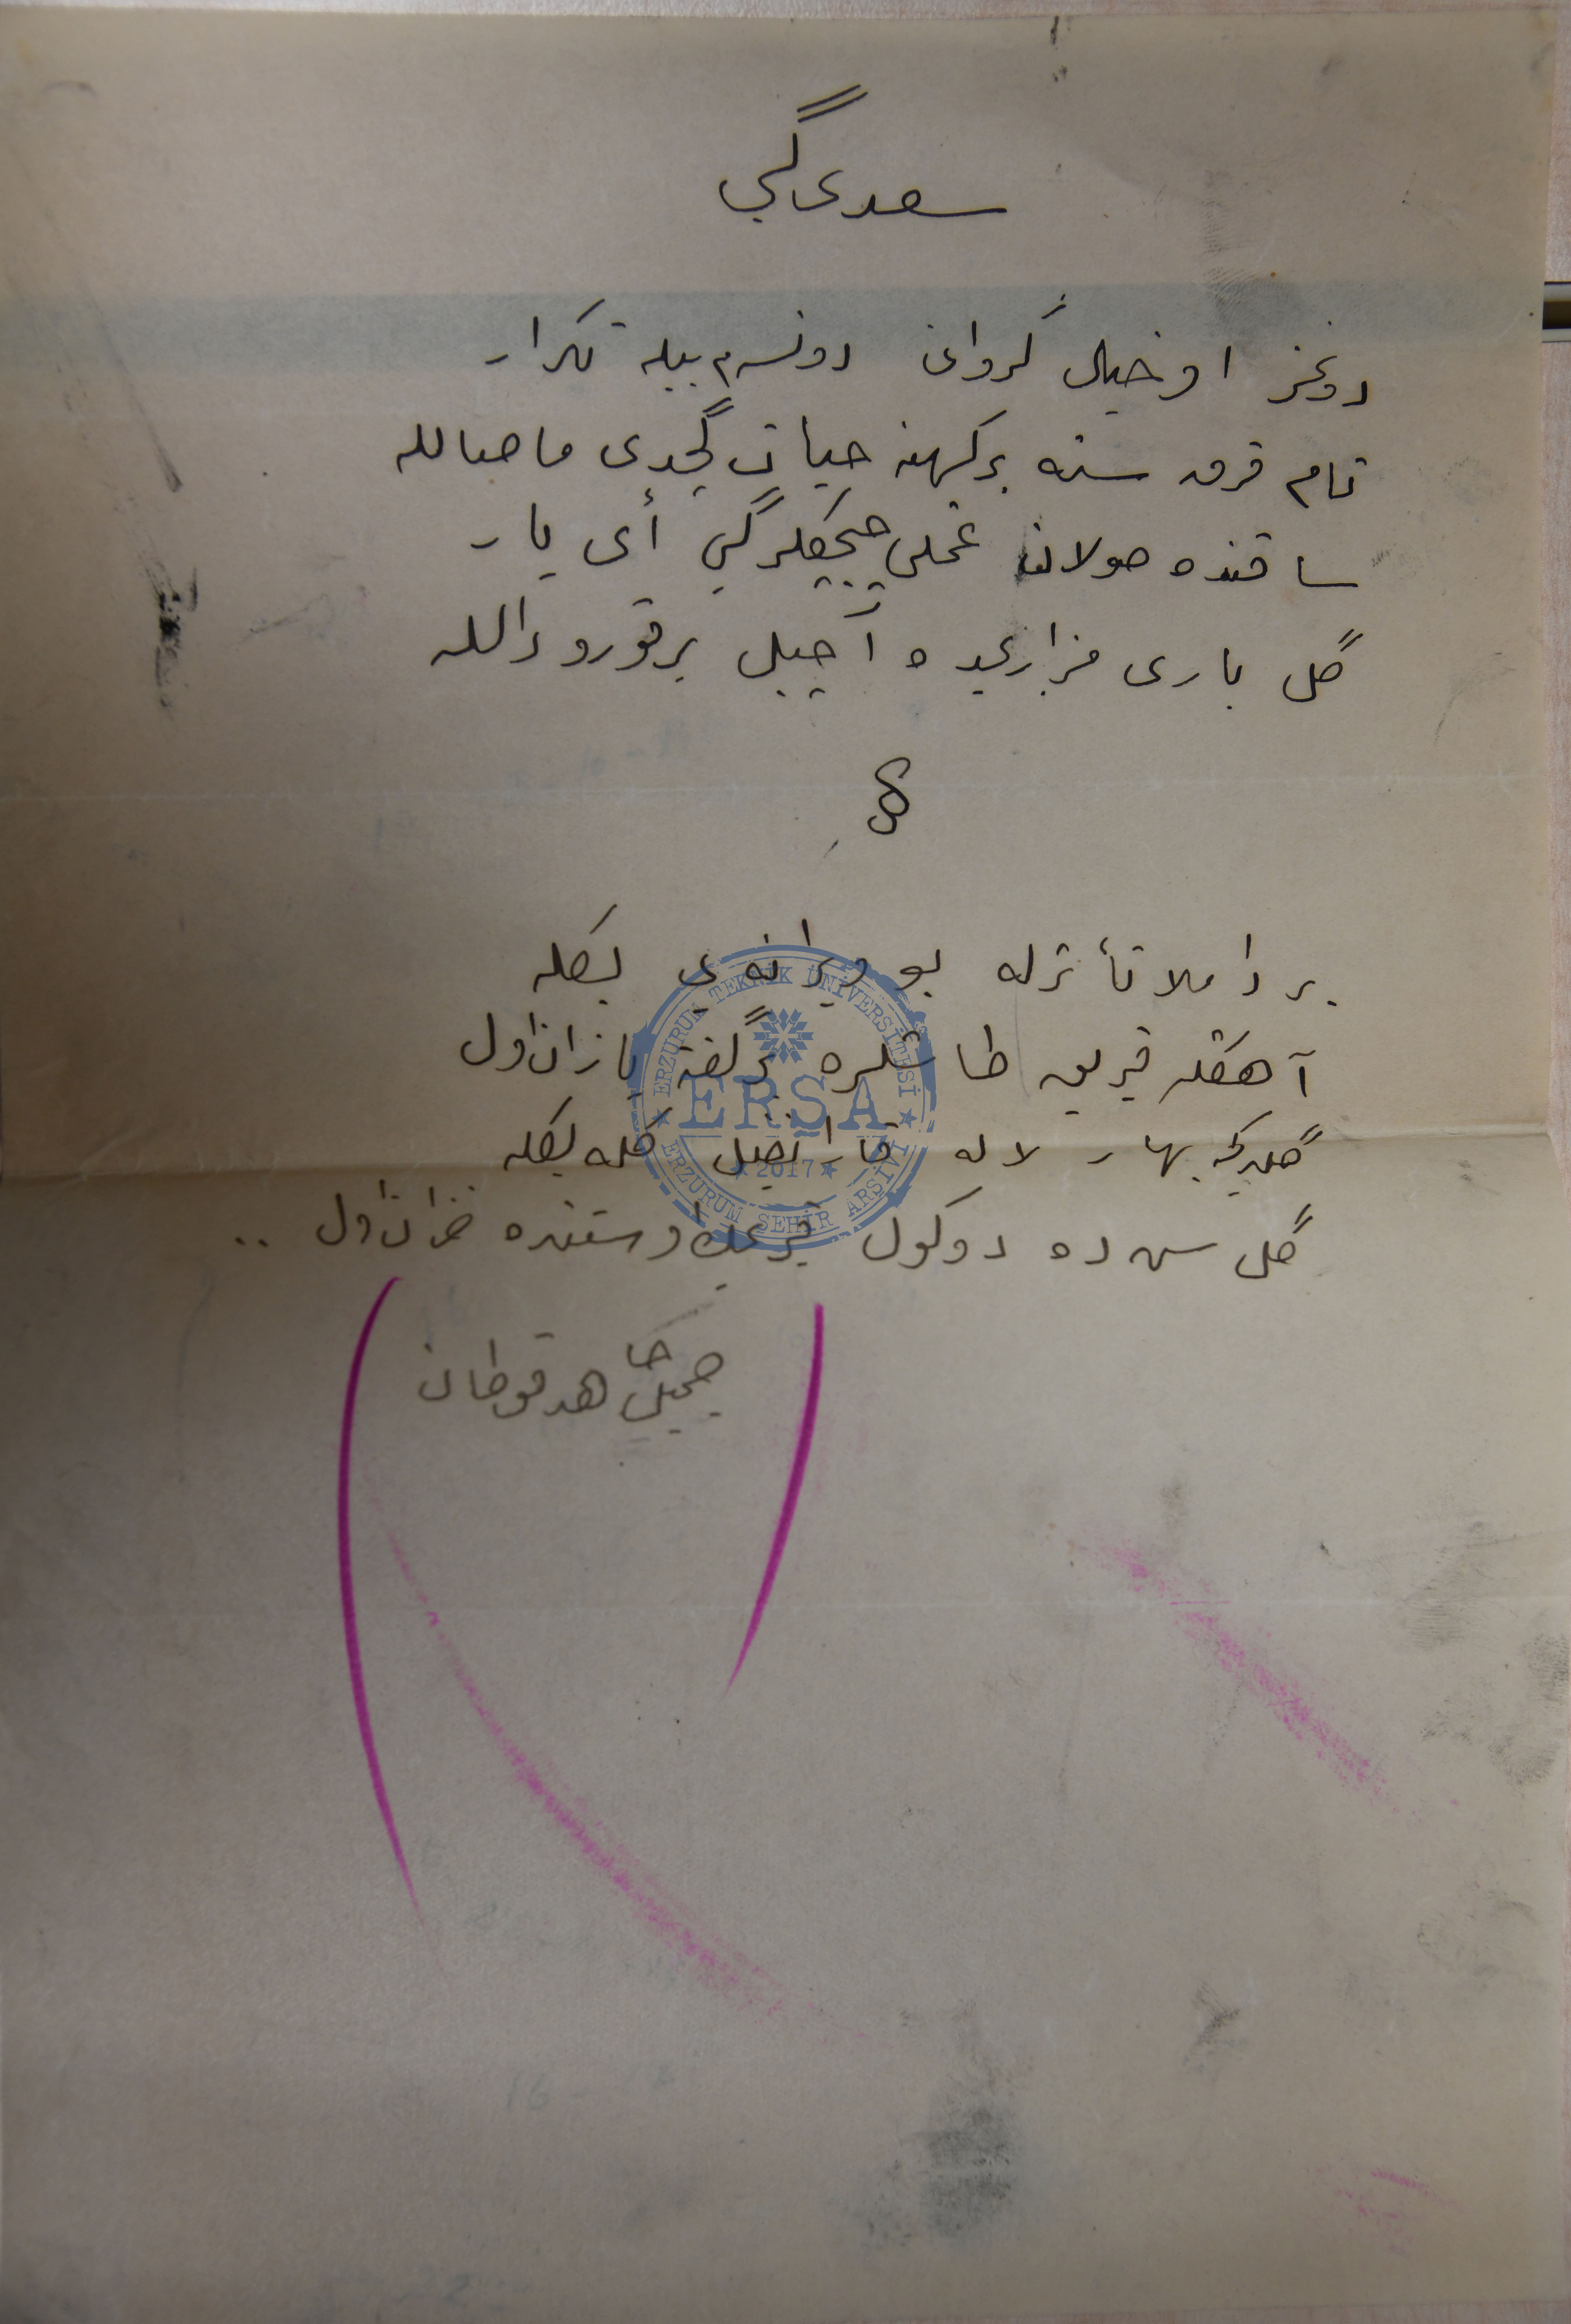 سعدی گبی
دونمز او خیال کروان دونسم بیله تکرار
تام قرق سنه بر کهنه حیات گچدی ماصالله
ساقنده صولان غملی چیچکلر گبی أی یار
گل باری مزاریمده آچیل بر قورو دالله
بر داملا تأثرله بو ویرانه‌ی بکله
آهڭله قیریق طاشلره بر گفته یازان اول
گلدیکجه بهار لاله قارانفیل گله بکله
گل سن ده دوکول قبریمڭ اوستنده خزان اول ..
جمیل شاهد قورطان
ERZURUM TEKNİK ÜNİVERSİTESİ
ERŞA
2017
ERZURUM ŞEHİR ARŞİVİ